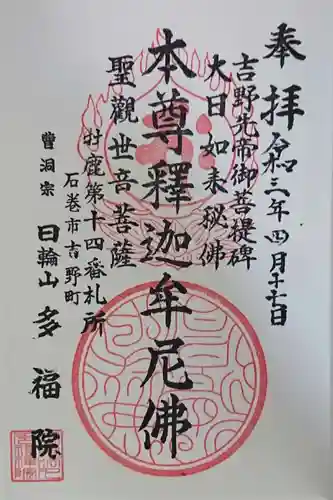 奉拝
令和三年四月二十七日
吉野先帝御菩提碑
大日如来秘佛
本尊釋迦牟尼佛
聖觀世音菩薩
牡鹿第十四番札所
石巻市吉野町
曹洞宗 日輪山 多福院